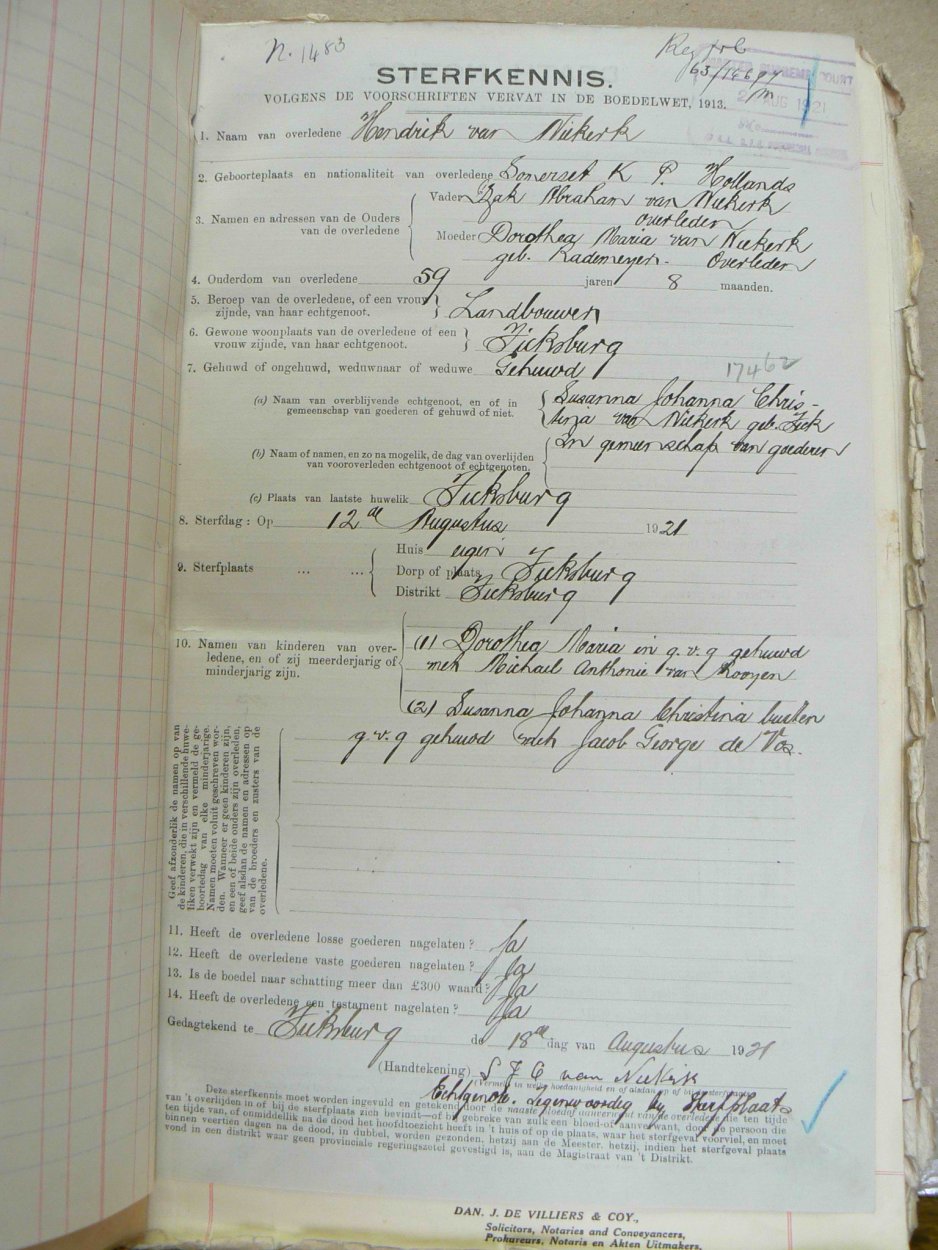 N. 1483
STERFKENNIS.
MASTER SUPREME COURT
AUG 1921
VOLGENS DE VOORSCHRIFTEN VERVAT IN DE BOEDELWET, 1913.
1. Naam van overledene Hendrik van Niekerk
2. Geboorteplaats en nationaliteit van overledene Somerset K P. Hollands
3. Namen en adressen van de Ouders van de overledene
Vader Izak Abraham van Niekerk
overleden
Moeder Dorothea Maria van Niekerk
geb. Rademeyer. Overleden
4. Ouderdom van overledene 59 jaren 8 maanden.
5. Beroep van de overledene, of een vrouw
zijnde, van haar echtgenoot.
Landbouwer
6. Gewone woonplaats van de overledene of een
vrouw zijnde, van haar echtgenoot.
Ficksburg
7. Gehuwd of ongehuwd, weduwnaar of weduwe Gehuwd
17462
(a) Naam van overblijvende echtgenoot, en of in
gemeenschap van goederen of gehuwd of niet.
Susanna Johanna Chris-
tina van Niekerk geb. Fick
In gemeenschap van goederen
(b) Naam of namen, en zo na mogelik, de dag van overlijden
van vooroverleden echtgenoot of echtgenoten.
(c) Plaats van laatste huwelik Ficksburg
8. Sterfdag: Op 12de Augustus 1921
9. Sterfplaats ... ...
Huis eigen
Dorp of plaats Ficksburg
Distrikt Ficksburg
10. Namen van kinderen van over-
ledene, en of zij meerderjarig of
minderjarig zijn.
(1) Dorothea Maria in g.v.g gehuwd
met Michael Anthonie van Rooyen
(2) Susanna Johanna Christina buiten
g.v.g gehuwd met Jacob George de Vos.
Geef afzonderlik de namen op van
de kinderen, die in verschillende huwe-
liken verwekt zijn en vermeld de ge-
boortedag van elke minderjarige.
Namen moeten voluit geschreven wor-
den. Wanneer er geen kinderen zijn,
en een of beide ouders zijn overleden,
geef alsdan de namen en adressen op
van de broeders en zusters van de
overledene.
11. Heeft de overledene losse goederen nagelaten? Ja
12. Heeft de overledene vaste goederen nagelaten? Ja
13. Is de boedel naar schatting meer dan £300 waard? Ja
14. Heeft de overledene een testament nagelaten? Ja
Gedagtekend te Ficksburg de 18de dag van Augustus 1921
(Handtekening) S J C van Niekerk
Echtgenote. Tegenwoordig by Sterfplaats
Deze sterfkennis moet worden ingevuld en getekend door de naaste bloed of aanverwant van de overledene die ten tijde
van 't overlijden in of bij de sterfplaats zich bevindt—of bij gebreke van zulk een bloed-of aanverwant, door de persoon die
ten tijde van, of onmiddellik na de dood het hoofdtoezicht heeft in 't huis of op de plaats, waar het sterfgeval voorviel, en moet
binnen veertien dagen na de dood, in dubbel, worden gezonden, hetzij aan de Meester, hetzij, indien het sterfgeval plaats
vond in een distrikt waar geen provinciale regeringszetel gevestigd is, aan de Magistraat van 't Distrikt.
DAN. J. DE VILLIERS & COY.,
Solicitors, Notaries and Conveyancers,
Prokureurs, Notaris en Akten Uitmakers,